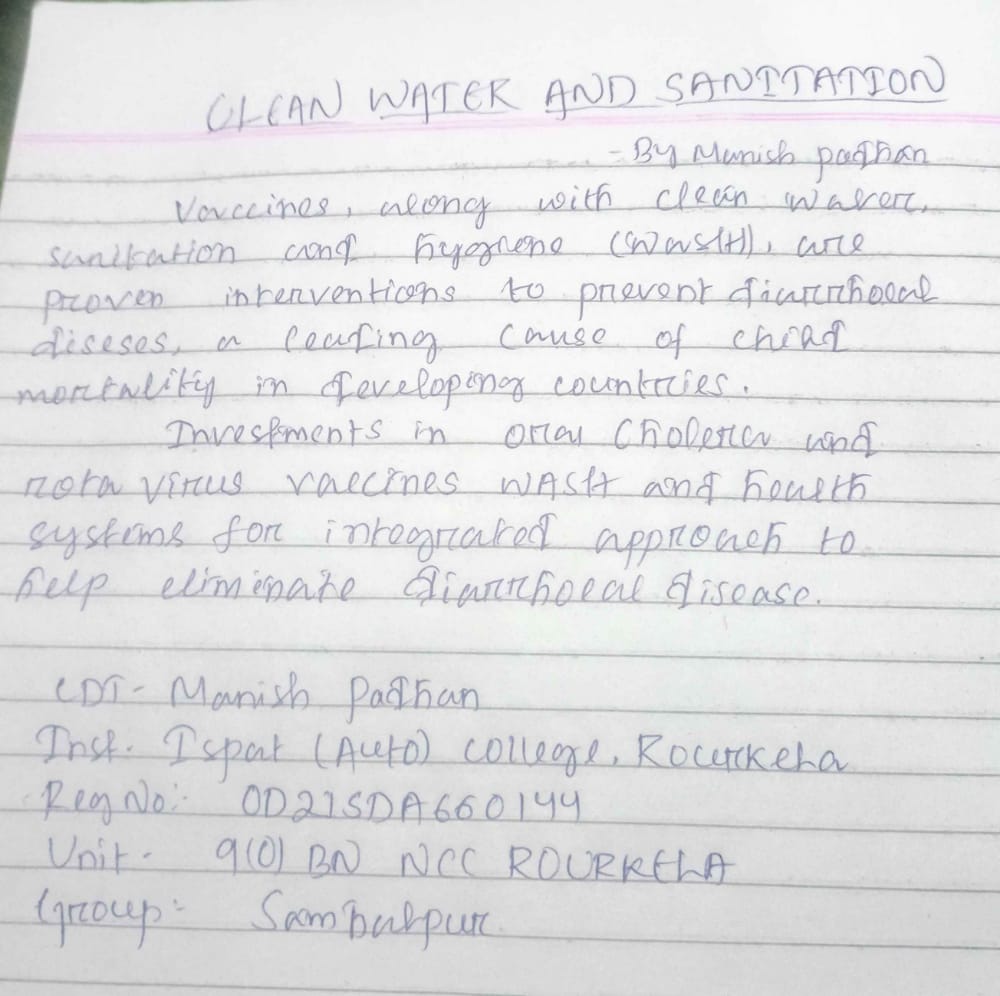 CLEAN WATER AND SANITATION
- By Manish padhan
Vaccines, along with clean water,
sanitation and hygiene (WASH), are
proven interventions to prevent diarrhoeal
diseses, a leading cause of child
mortality in developing countries.
Investments in oral cholera and
rota virus vaccines WASH and health
systems for integrated approach to
help eliminate diarrhoeal disease.
CDT- Manish padhan
Inst. Ispat (Auto) college, Rourkela
Reg No:- OD21SDA660144
Unit- 9(O) BN NCC ROURKELA
Group:- Sambalpur